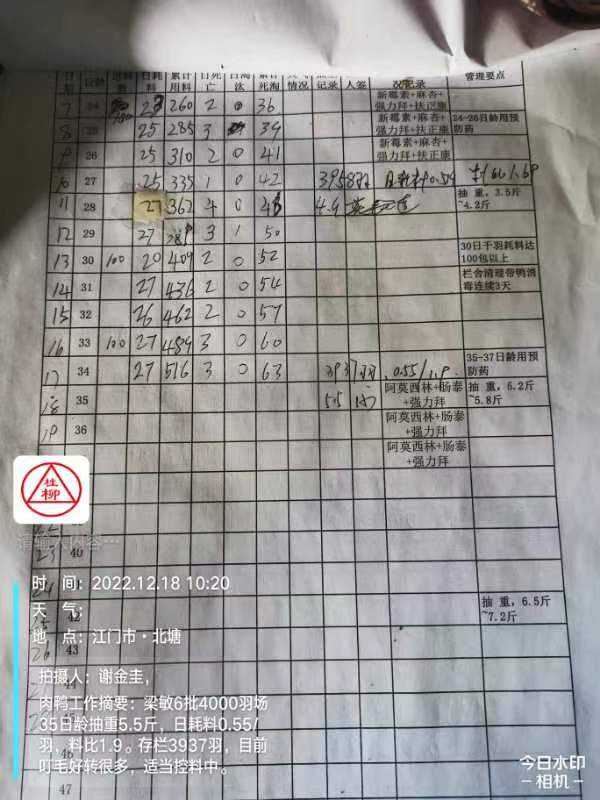 日耗料 累计用料 日死亡 日淘汰 累计死淘 情况 记录 人签 况记录 管理要点
7 24 23 260 2 0 36 新霉素+麻杏+强力拜+扶正康
8 25 25 285 3 39 新霉素+麻杏+强力拜+扶正康 24-26日龄用预防药
9 26 25 310 2 0 41 新霉素+麻杏+强力拜+扶正康
10 27 25 335 1 0 42 3958羽
11 28 27 362 4 0 4.4 抽 重,3.5斤~4.2斤
12 29 27 389 3 1 50
13 30 100 20 409 2 0 52 30日千羽耗料达100包以上
14 31 27 436 2 0 54 栏舍清理带鸭消毒连续3天
15 32 26 462 2 0 57
16 33 100 27 489 3 0 60
17 34 27 516 3 0 63 3937羽 0.55/1.9 35-37日龄用预防药
18 35 5.5 阿莫西林+肠泰+强力拜 抽 重,5.2斤~5.8斤
19 36 阿莫西林+肠泰+强力拜
阿莫西林+肠泰+强力拜
桂柳
请输入内容…
23 40
42 抽 重,6.5斤~7.2斤
26 43
44
46
47
时 间:2022.12.18 10:20
天 气:
地 点:江门市·北塘
拍摄人:谢金圭,
肉鸭工作摘要:梁敏6批4000羽场
35日龄抽重5.5斤,日耗料0.55/
羽、料比1.9。存栏3937羽,目前
叮毛好转很多,适当控料中。
今日水印
-相机-